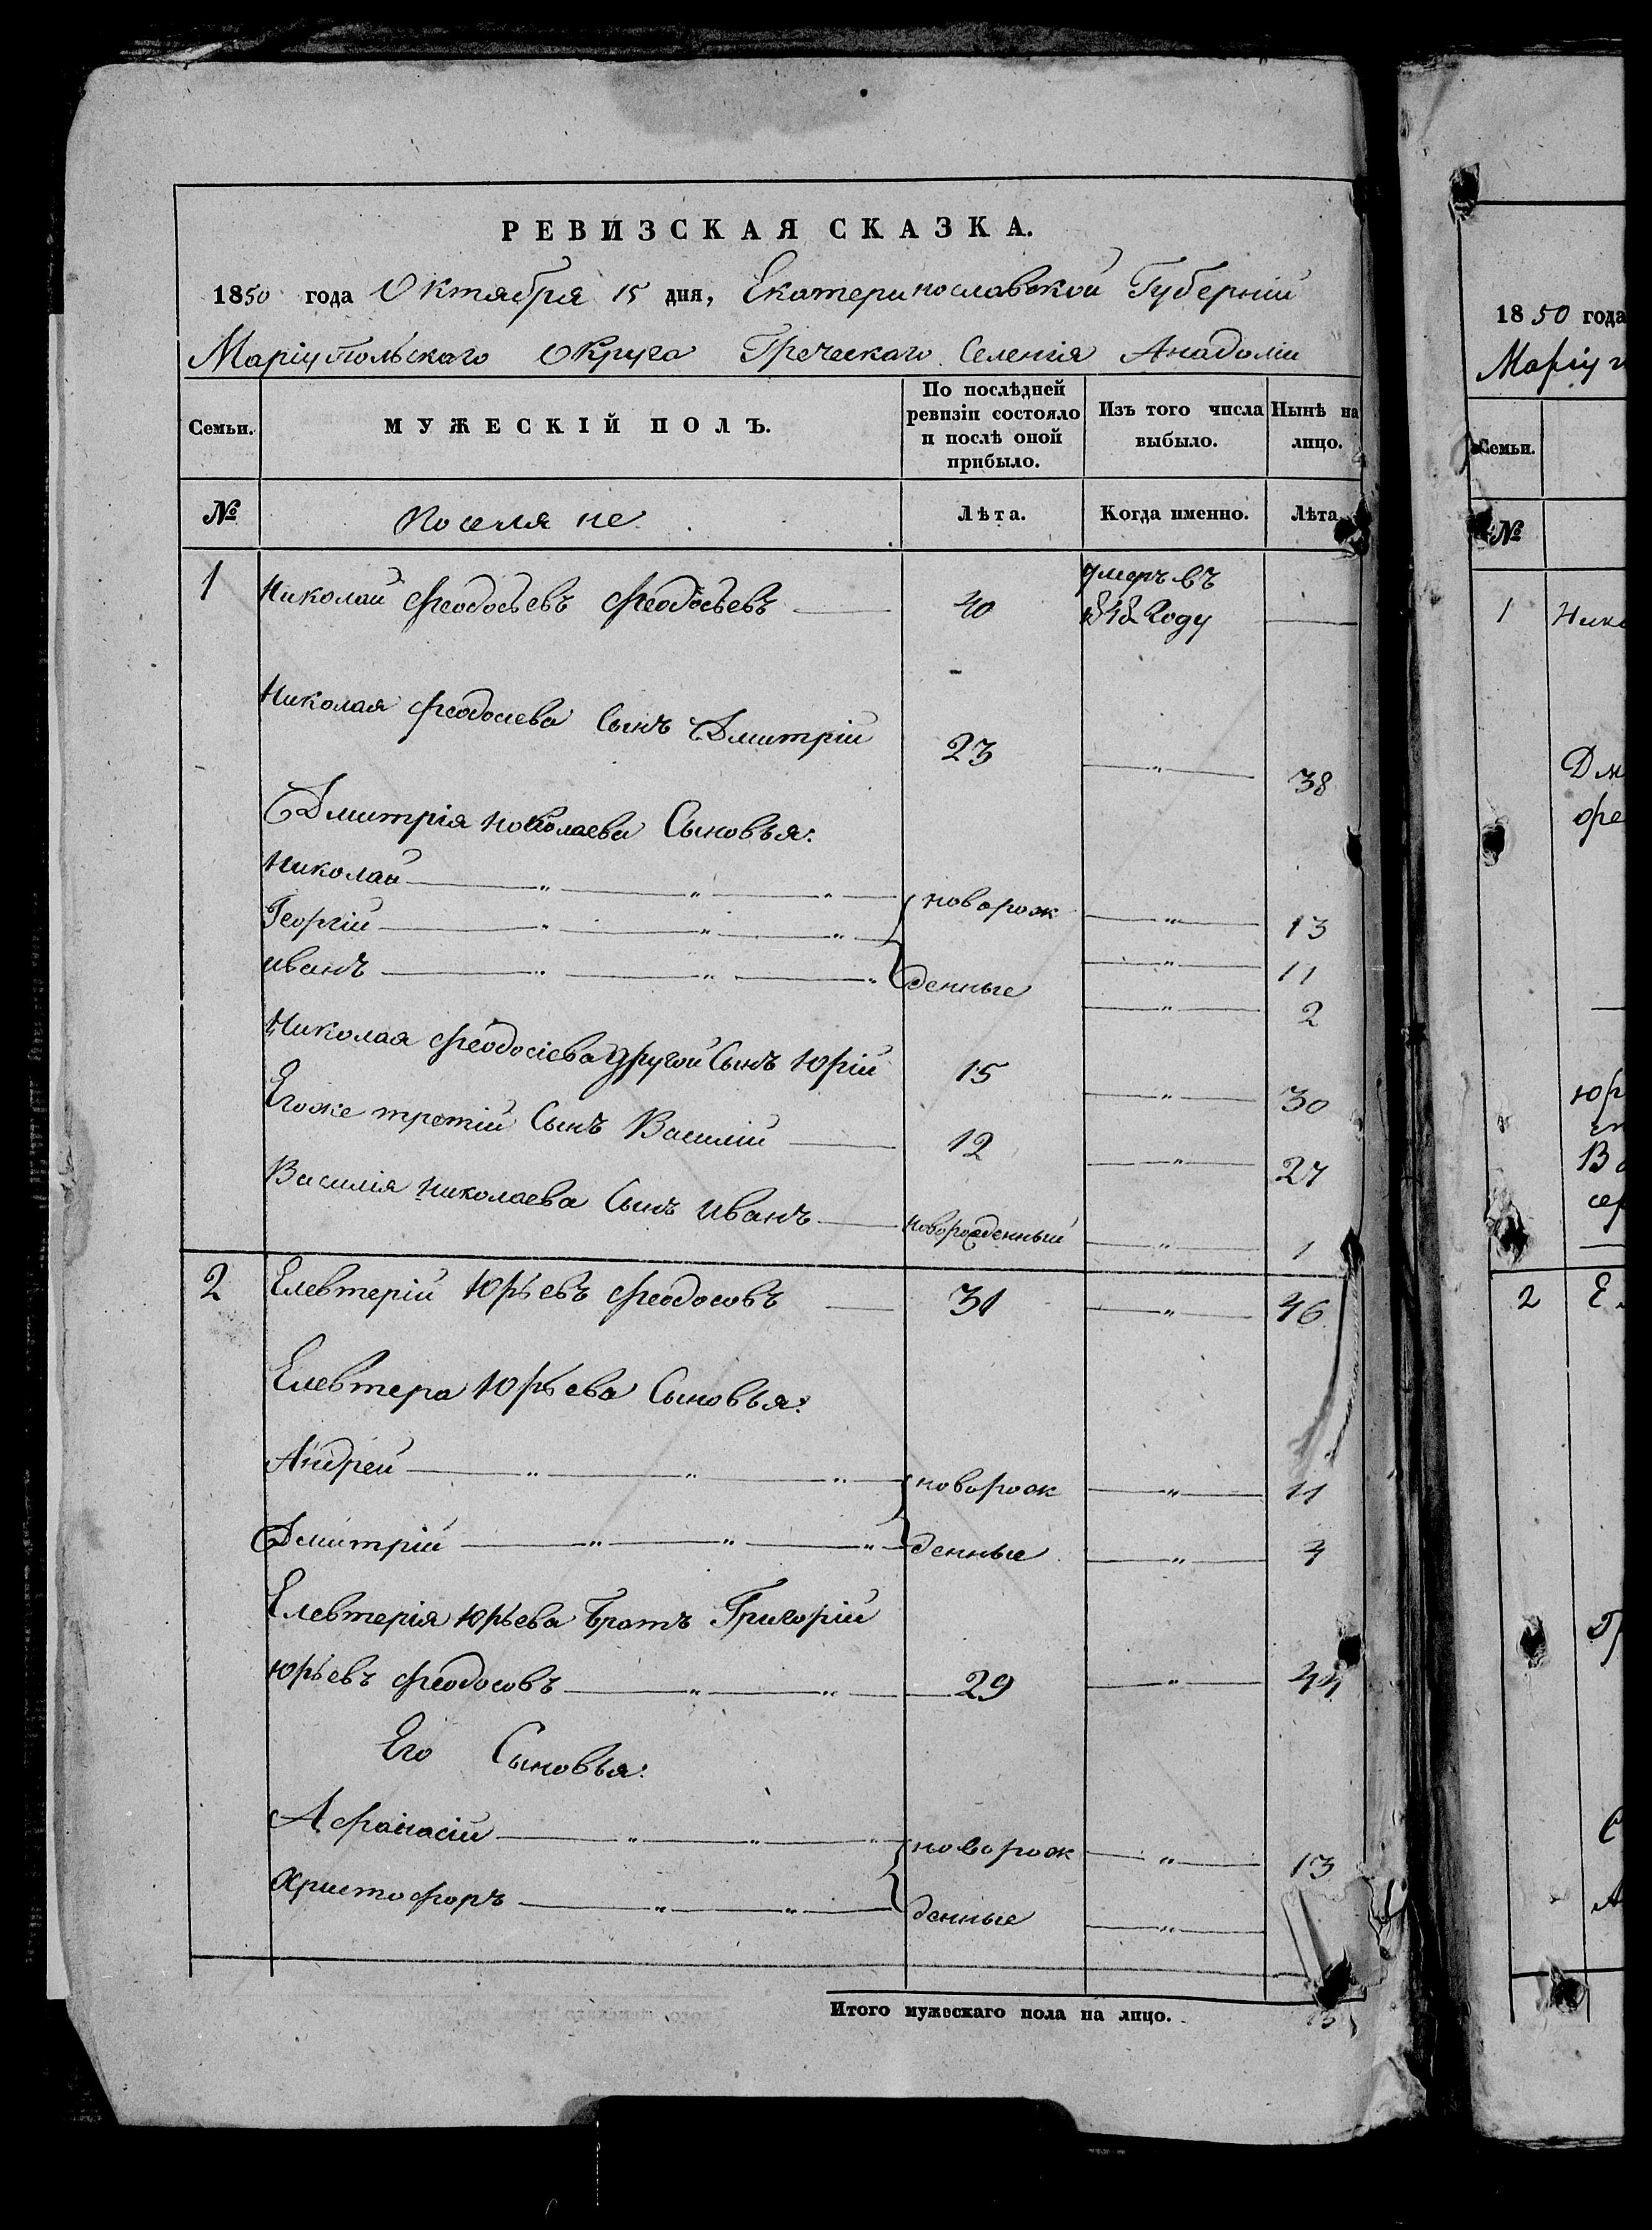 РЕВИЗСКАЯ СКАЗКА.
1850 года Октября 15 дня, Екатеринославской Губерніи
Маріупольскаго Округа Греческаго Селенія Анадоліи
Семьи. МУЖЕСКІЙ ПОЛЪ. По послѣдней ревизіи состояло и послѣ оной прибыло. Изъ того числа выбыло. Нынѣ на лицо.
№ Поселяне Лѣта. Когда именно. Лѣта.
1 Николай Феодосьевъ Феодосьевъ 40 умеръ въ 1848 Году
Николая Феодосиева Сынъ Дмитрій 23 " 38
Дмитрія Николаева Сыновья:
Николай " " " новорож " 13
Георгій " " " " 11
Иванъ " " " денные " 2
Николая Феодосіева другой Сынъ Юрій 15 " 30
Егоже третій Сынъ Василій 12 " 27
Василія Николаева Сынъ Иванъ новорожденный " 1
2 Елевтерій Юрьевъ Феодосовъ 31 " 46
Елевтера Юрьева Сыновья:
Андрей " " " новорож " 11
Дмитрій " " " денные " 4
Елевтерія Юрьева Братъ Григорій
Юрьевъ Феодосовъ " " 29 " 44
Его Сыновья:
Афанасій " " " новорож " 13
Христофоръ " " денные "
Итого мужескаго пола на лицо.
1850 года
Маріу
Семьи.
№
1 Нико
Дм
Фе
Юр
Ва
сер
2 Е